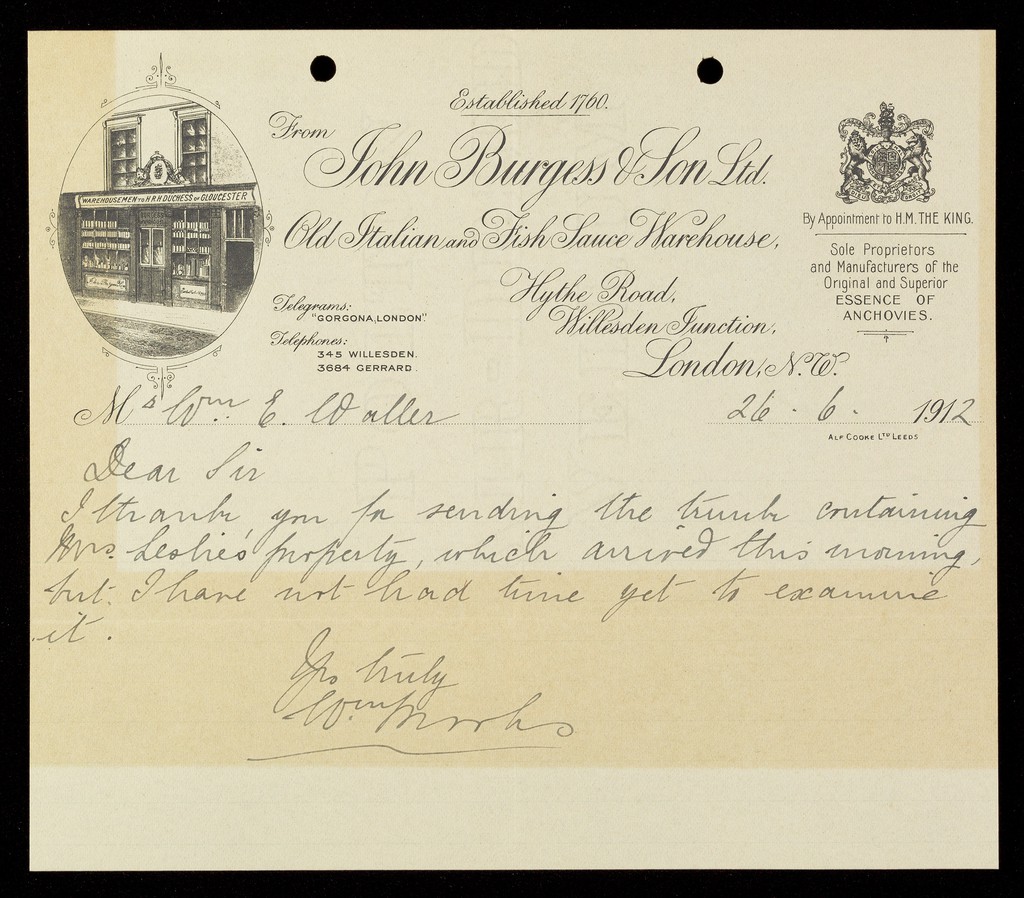 Established 1760.
From
John Burgess & Son Ltd.
Old Italian and Fish Sauce Warehouse,
Hythe Road,
Willesden Junction,
London, N.W.
Telegrams:
"GORGONA, LONDON".
Telephones:
345 WILLESDEN.
3684 GERRARD.
WAREHOUSEMEN TO H.R.H. DUCHESS OF GLOUCESTER
By Appointment to H.M. THE KING.
Sole Proprietors
and Manufacturers of the
Original and Superior
ESSENCE OF
ANCHOVIES.
Mr Wm. E. Waller
26 . 6 . 1912
ALF COOKE LTD LEEDS
Dear Sir
I thank you for sending the trunk containing
Mrs. Leslie's property, which arrived this morning,
but I have not had time yet to examine
it.
Yrs truly
Wm